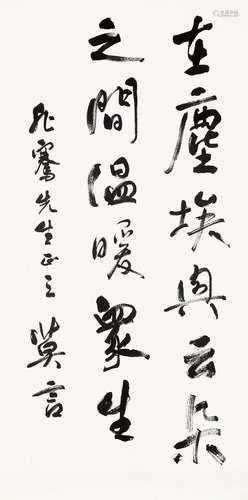 在塵埃與云朵
之間溫暖眾生
飛騫先生正之 莫言